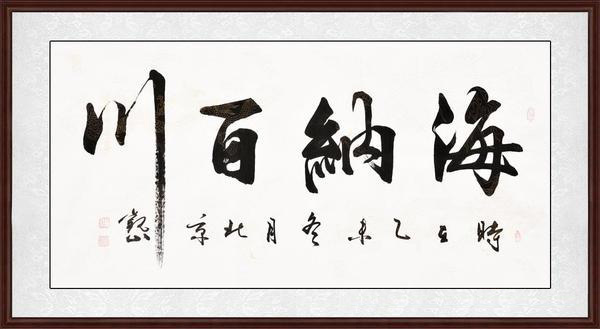 海納百川
時在乙未冬月北京